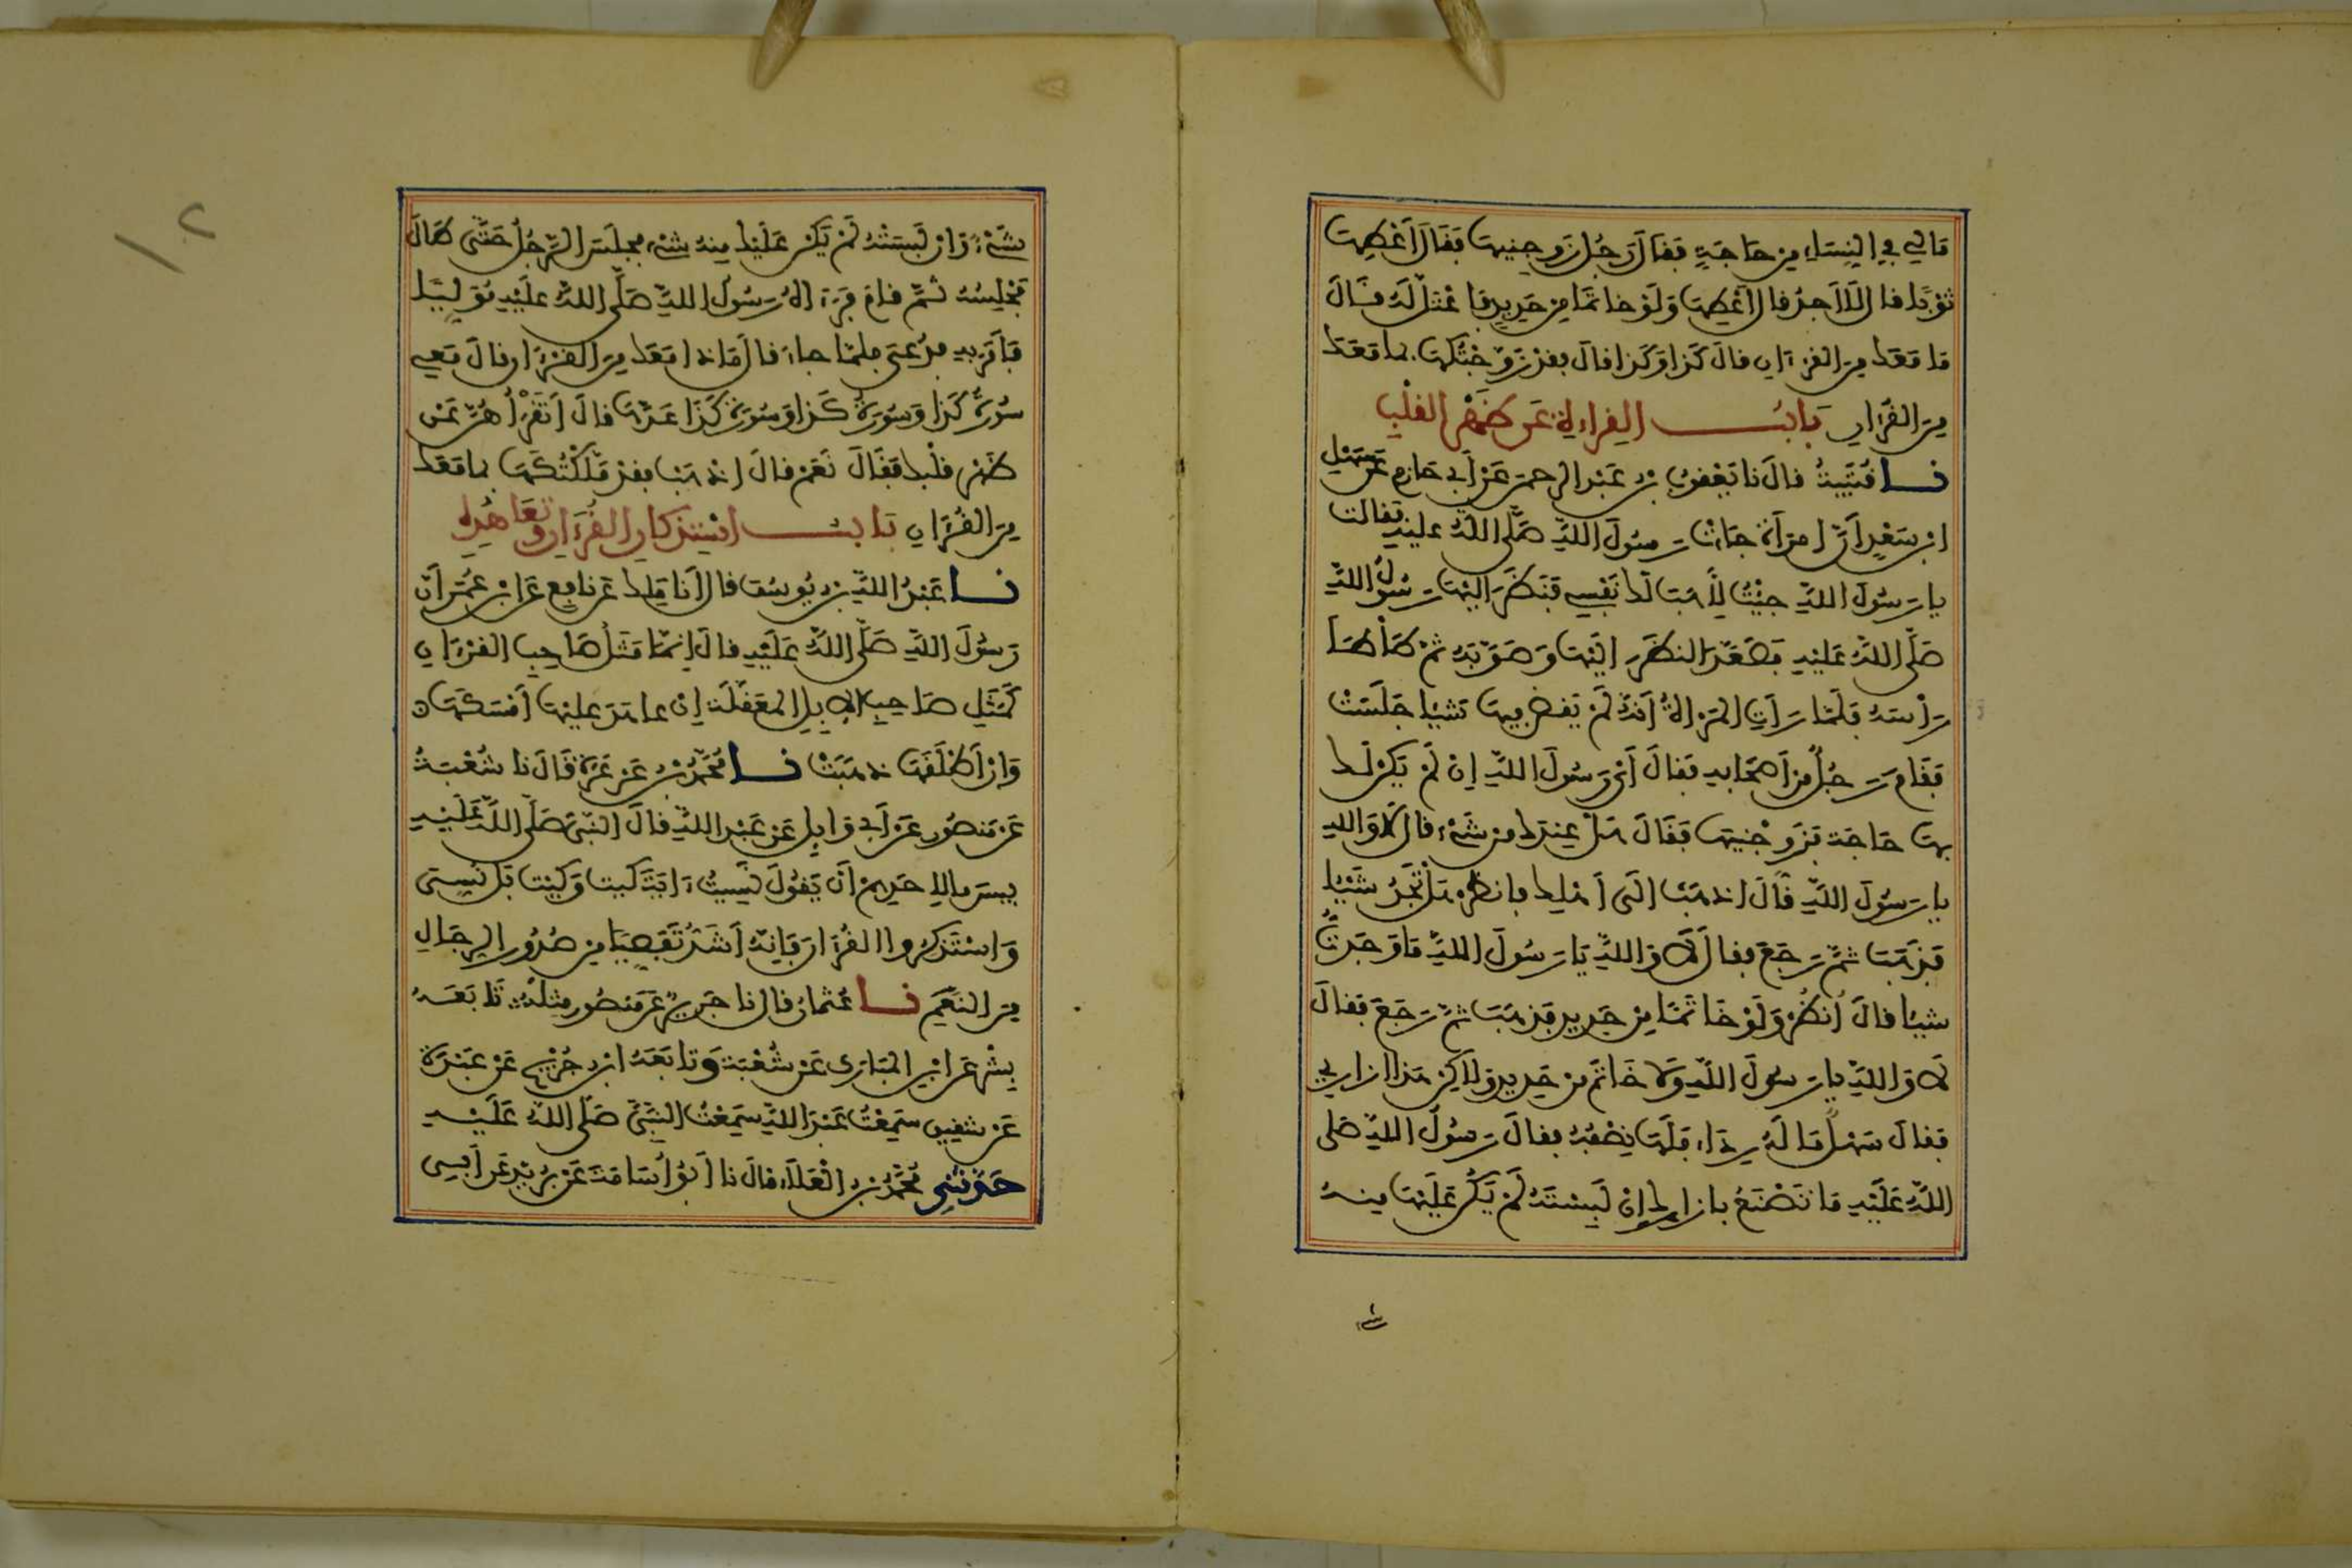 مَالِي فِي النِّسَاءِ مِن حَاجَةٍ فَقَالَ رَجُلٌ زَوِّجْنِيهَا فَقَالَ أَعْطِهَا
ثَوْبًا قال لَا أَجِدُ قال أَعْطِهَا وَلَوْ خاتمًا مِن حَدِيدٍ فَاعْتَلَّ لَهُ فَقَالَ
مَا مَعَكَ مِنَ القرءان قالَ كَذَا وَكَذَا قالَ فقد زَوَّجْتُكَهَا بما مَعَكَ
مِنَ القُرْءانِ بَابُ القِرَاءَةِ عَن ظَهْرِ القَلْبِ
نا قُتَيْبَةُ قالَ نا يَعْقُوبُ بن عَبْد الرحمن عَنْ أَبِي حَازِم عَن سَهْلِ
ابن سَعْدٍ أَنَّ امرَأَةً جَاءَتْ رسُولَ اللَّهِ صَلَّى اللَّهُ عليه فقالت
يا رَسُولَ اللَّهِ جِئْتُ لِأَهَبَ لَكَ نَفْسِي فَنَظَرَ إِلَيْهَا رَسُولُ اللَّهِ
صَلَّى اللَّهُ عَلَيْهِ فَصَعَّدَ النظَرَ إِلَيْهَا وَصَوَّبَهُ ثُمَّ طَأْطَأَ
رَأْسَهُ فَلَمَّا رَأَتِ المَرْأَةُ أَنَّهُ لَمْ يَقْضِ فِيهَا شَيْئًا جَلَسَتْ
فَقَامَ رَجُلٌ مِن أَصْحَابِهِ فَقَالَ أَيْ رَسُولَ اللَّهِ إِن لَمْ يَكُن لَكَ
بِهَا حَاجَة فَزَوِّجْنِيهَا فَقَالَ هَلْ عِندَكَ مِن شَيْءٍ قال لَا وَاللَّهِ
يا رَسُولَ اللَّهِ قَالَ اذْهَبْ إِلَى أَهْلِكَ فانظُرْ هَلْ تَجِدُ شَيْئًا
فَذَهَبَ ثُمَّ رَجَعَ فقالَ لَا وَاللَّهِ يَا رَسُولَ اللَّهِ مَا وَجَدْتُ
شَيْئًا قالَ انْظُرْ وَلَوْ خَاتَمًا مِن حَدِيدٍ فَذَهَبَ ثُمَّ رَجَعَ فَقالَ
لَا وَاللَّهِ يا رَسُولَ اللَّهِ وَلَا خَاتَم مِن حَدِيدٍ وَلَاكِنْ هَذَا إِزَارِي
فَقالَ سَهْلٌ مَا لَهُ رِدَاءٌ فَلَهَا نِصْفُهُ فقالَ رَسُولُ اللَّهِ صَلى
اللَّهُ عَلَيْهِ مَا تَصْنَعُ بإزارِكَ إِنْ لَبِسْتَهُ لَمْ يَكُنْ عَلَيْهَا مِنهُ
شَيْءٌ وَإِن لَبِسَتْهُ لَمْ يَكُن عَلَيْكَ مِنهُ شَيْءٌ فجلَسَ الرَّجُلُ حَتَّى طَالَ
مَجْلِسُهُ ثُمَّ قامَ فَرَءَاهُ رَسُولُ اللَّهِ صَلَّى اللَّهُ عَلَيْهِ مُوَلِّيًا
فَأَمَرَ بِهِ فدُعِيَ فلمَّا جاءَ قالَ مَاذا مَعَكَ مِنَ القُرْءان قالَ مَعِي
سُورَةُ كَذَا وَسُورَةُ كَذَا وَسُورَةُ كَذَا عَدَّهَا قالَ أَتَقْرَأُهُنَّ عَن
ظَهْرِ قَلْبِكَ فَقَالَ نَعَمْ قالَ اذْهَبْ فقد مَلَّكْتُكَهَا بما مَعَكَ
مِنَ القُرْءَانِ بَابُ اسْتِذكارِ القُرْءَانِ وتَعَاهُدِهِ
نا عَبْدُ اللَّهِ بن يُوسُفَ قال أَنَا مَالِك عَن نافِعٍ عَن ابْنِ عُمَرَ أَنَّ
رَسُولَ اللَّهِ صَلَّى اللَّهُ عَلَيْهِ قالَ إِنَّمَا مَثَلُ صَاحِبِ القُرْءَانِ
كَمَثَلِ صَاحِبِ الإِبِلِ المُعَقَّلَةِ إِنْ عاهَدَ عليْهَا أَمْسَكَهَا
وَإِنْ أَطْلَقَهَا ذهَبَتْ نا مُحَمَّدُ بن عَرْعَرَة قَالَ نا شُعْبَةُ
عَن مَنصُورٍ عَنْ أَبِي وَايِلٍ عَن عَبْدِ اللَّهِ قالَ النَّبِيُّ صَلَّى اللَّهُ عَلَيْهِ
بِيسَ مالِأَحَدِهِمْ أَنْ يَقُولَ نَسِيتُ ءَايَةَ كَيْتَ وَكَيْتَ بَل نُسِّيَ
وَاسْتَذْكِرُوا القُرْءَانَ فَإِنَّهُ أَشَدُّ تَفَصِّيًا مِن صُدُورِ الرِّجَالِ
مِنَ النَّعَمِ نا عُثمانُ قال نا جَرِيرٌ عَن مَنصُورٍ مِثْلَهُ تَابَعَهُ
بِشْر عَن ابْنِ المُبَارَك عَن شُعْبَةَ وَتَابَعَهُ ابن جُرَيْجٍ عَنْ عَبْدَةَ
عَن شَقِيقٍ سَمِعْتُ عَبْدَ اللَّهِ سَمِعْتُ النَّبِيَّ صَلَّى اللَّهُ عَلَيْهِ
حَدَّثَنِي مُحَمَّدُ بن الْعَلَاءِ قالَ نا أَبُو أُسَامَةَ عَن بُرَيْدٍ عَن أَبِي
شيء
١٢